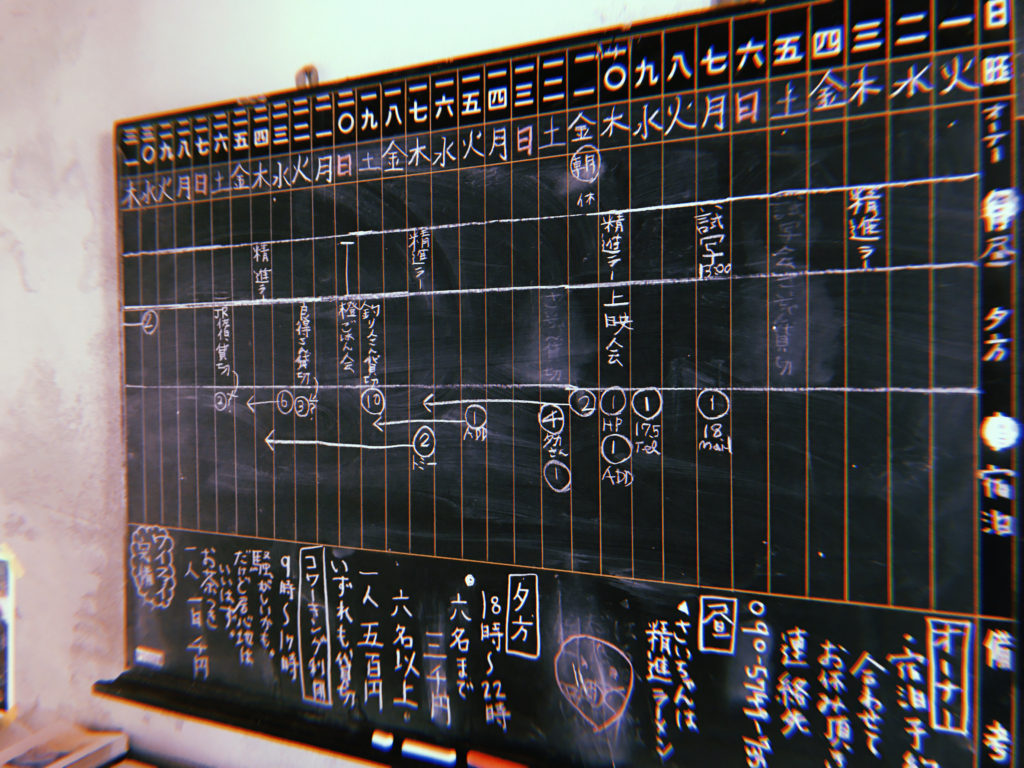 日 一 二 三 四 五 六 七 八 九 十〇 一一 一二 一三 一四 一五 一六 一七 一八 一九 二〇 二一 二二 二三 二四 二五 二六 二七 二八 二九 三〇 三一
曜 火 水 木 金 土 日 月 火 水 木 金 土 日 月 火 水 木 金 土 日 月 火 水 木 金 土 日 月 火 水 木
オーナー
昼
夕方
宿泊
備考
精進ラー
試写
13:00
精進ラー
上映会
朝
休
精進ラー
釣りくさん貸切
橙ごはん会
精進ラー
貸切
①
18
mail
①
175
Tel
①
HP
①
ADD
②
④
①
①
ADD
②
トミー
⑩
③?
⑥
②?
②
オーナー
・宿泊予
合わせて
お休み頂い
連絡先
昼
さいちゃんは
精進ラーメン
夕方
18時〜22時
六名まで
三千円
六名以上
一人 五百円
いずれも貸切
コワーキング利用
9時〜17時
騒がしいかも。
だけど居心地は
いいはず。
お茶つき
一人 一日 千円
ワイファイ
完備